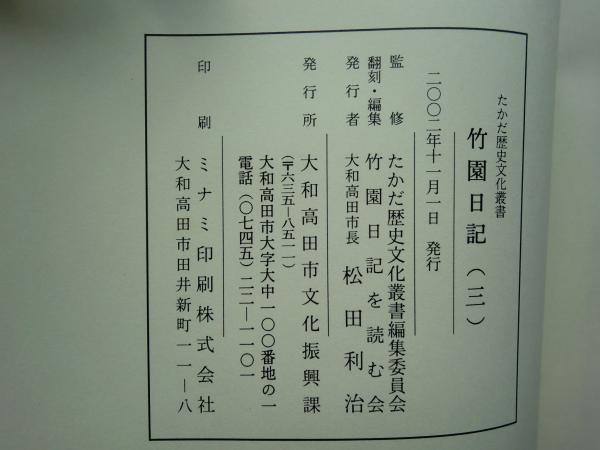 たかだ歴史文化叢書
竹園日記（三）
二〇〇二年十一月一日　発行
監修　たかだ歴史文化叢書編集委員会
翻刻・編集　竹園日記を読む会
発行者　大和高田市長　松田利治
発行所　大和高田市文化振興課
（〒六三五―八五一一）
大和高田市大字大中一〇〇番地の一
電話（〇七四五）二二―一一〇一
印刷　ミナミ印刷株式会社
大和高田市田井新町一一―八